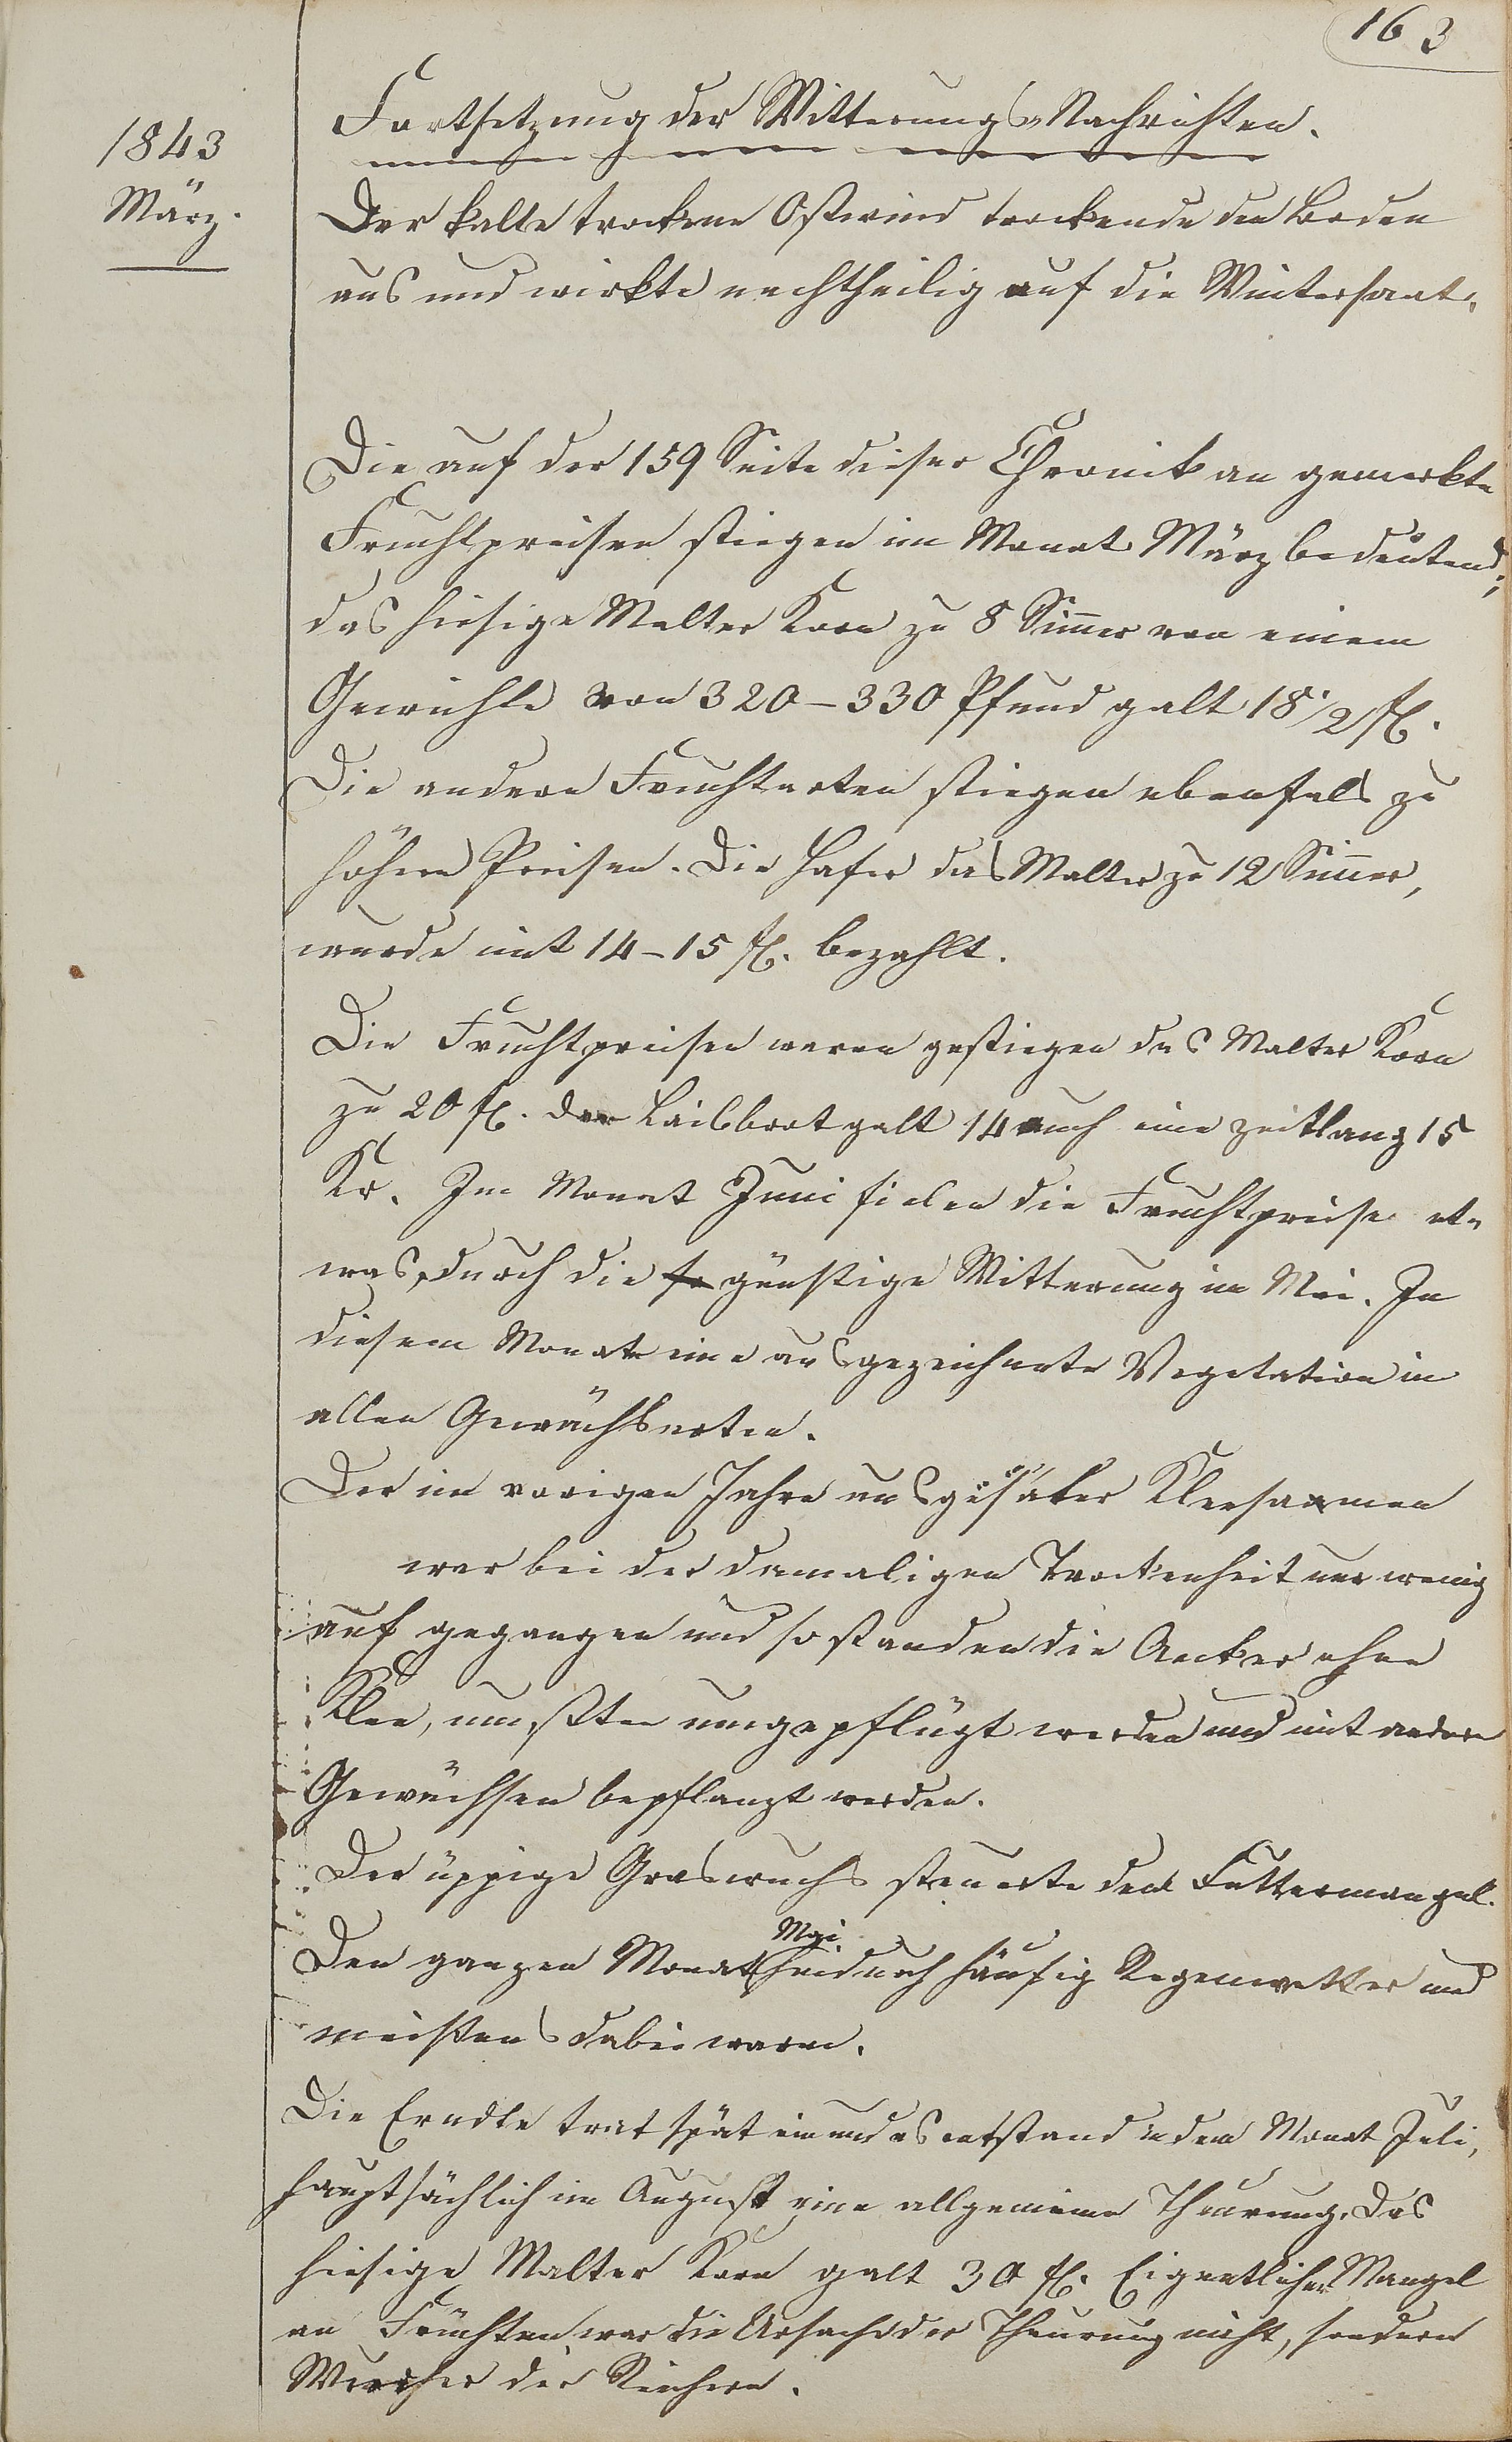 163
1843
März.
Fortsetzung der Witterungs-Nachrichten.
Der kalte trockene Ostwind trockende den Boden
aus und wirkte nachtheilig auf die Wintersaat.
Die auf der 159 Seite dieser Chronik an gemerkte
Fruchtpreisen stiegen im Monat März bedeutend;
das hiesige Malter Korn zu 8 Sim̅er von einem
Gewichte von 320-330 Pfund galt 18 1/2 fl.
Die andern Fruchtarten stiegen ebenfals zu
höhern Preisen. Die Hafer das Malter zu 12 Sim̅er,
wurde mit 14-15 fl. bezahlt.
Die Fruchtpreisen waren gestiegen das Malter Korn
zu 20 fl. der Laibbrot galt 14 auch eine zeitlang 15
Kr. Im Monat Juni fielen die Fruchtpreise et-
was, durch die so günstige Witterung im Mai. In
diesem Monat eine ausgezeichnete Vegetation in
allen Gewächsarten.
Der im vorigen Jahre ausgesäter Kleesaamen
war bei der damaligen Trockenheit nur wenig
auf gegangen und so standen die Aecker ohne
Klee, mußten umgepflügt werden und mit andern
Gewächsen bepflanzt werden.
Der üppige Graswuchs steuerte dem Futtermangel.
Den ganzen Monat Mai hindurch häufig Regenwetter und
meistens dabei warm.
Die Erndte trat spät ein und es entstand in dem Monat Juli,
hauptsächlich im August eine allgemeine Theurung. Das
hiesige Malter Korn galt 30 fl. Eigentlicher Mangel
an Früchten war die Ursache der Theurung nicht, sondern
Wucher der Reichern.